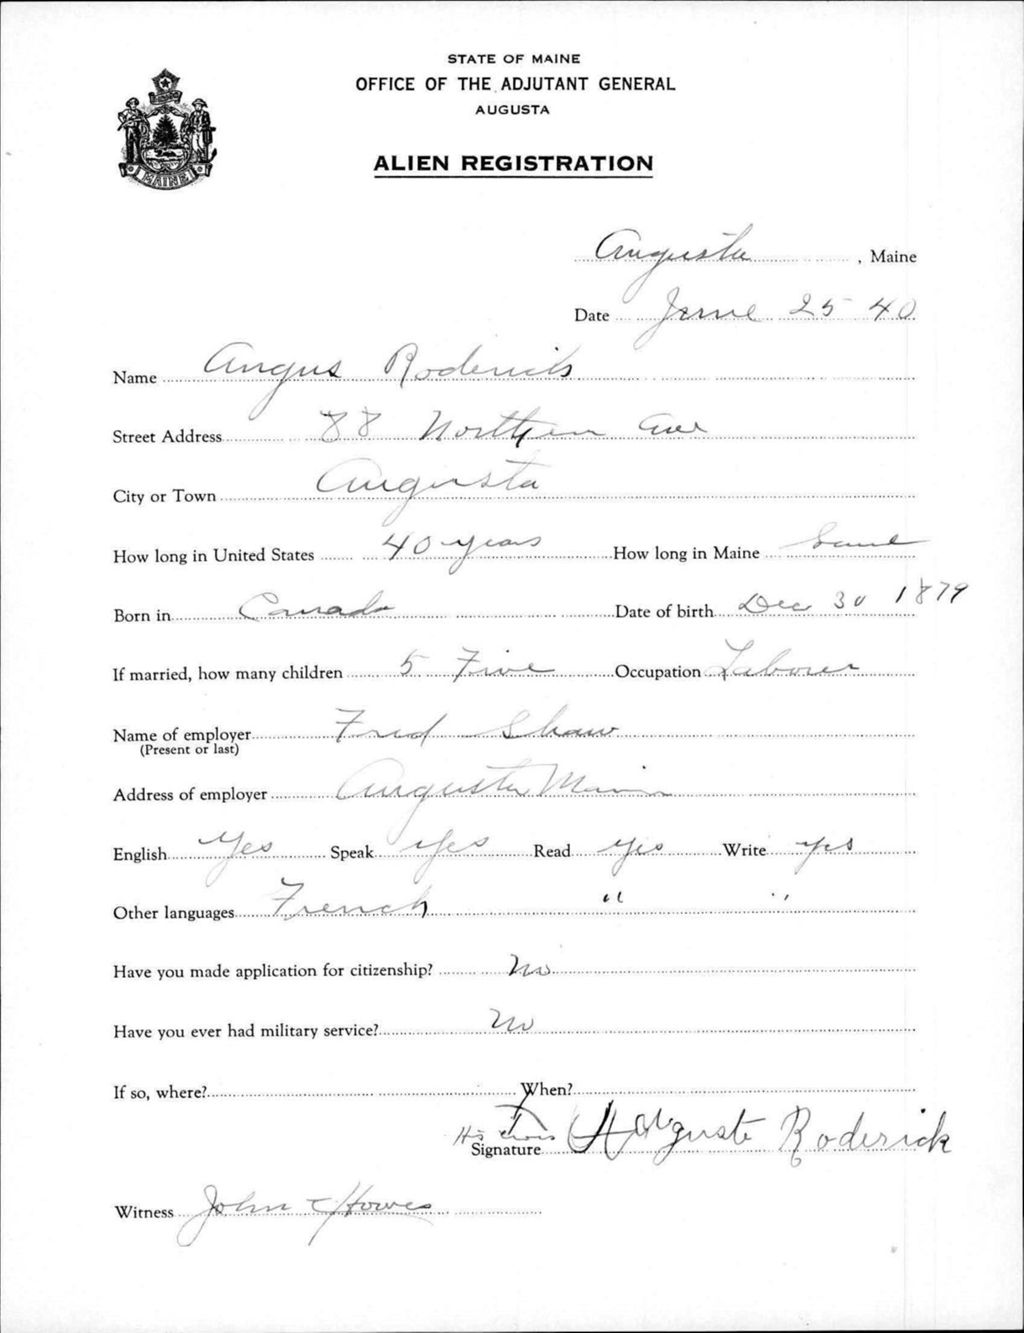 STATE OF MAINE
OFFICE OF THE ADJUTANT GENERAL
AUGUSTA
MAINE
ALIEN REGISTRATION
Augusta, Maine
Date June 25 40
Name Angus Roderick
Street Address 88 Northern Ave
City or Town Augusta
How long in United States 40 years How long in Maine Same
Born in Canada Date of birth Dec 30 1879
If married, how many children 5 Five Occupation Laborer
Name of employer Fred Shaw
(Present or last)
Address of employer Augusta Maine
English Yes Speak Yes Read Yes Write Yes
Other languages French " "
Have you made application for citizenship? No
Have you ever had military service? No
If so, where? When?
His cross
Signature Auguste Roderick
Witness John Howes